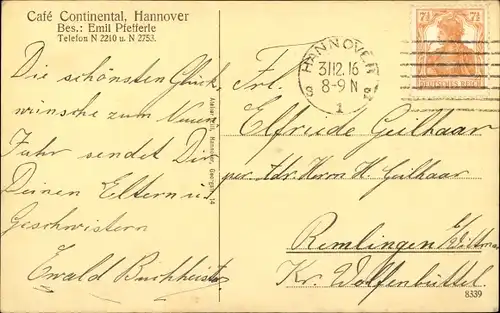 Café Continental, Hannover
Bes.: Emil Pfefferle
Telefon N 2210 u. N 2753.
Die schönsten Glück-
wünsche zum Neuen
Jahr sendet Dir
Deinen Eltern u.
Geschwistern
Ewald Buchheister
HANNOVER
31 12.16
8-9 N
1
7½ 7½
DEUTSCHES REICH
Frl.
Elfriede Geilhaar
per Adr. Herrn H. Geilhaar
Remlingen
Kr. Wolfenbüttel
8339